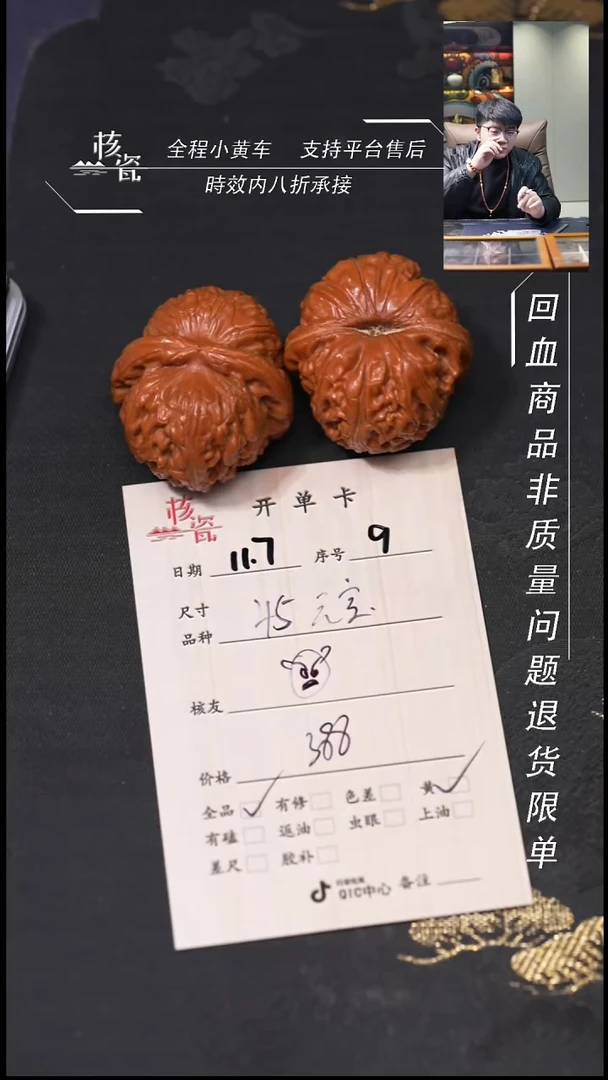 核瓷
全程小黄车 支持平台售后
時效内八折承接
回血商品非质量问题退货限单
核瓷
开单卡
日期 11.7 序号 9
尺寸
品种 45 元宝
核友
价格 388
全品 有修 色差 黄
有磕 返油 虫眼 上油
差尺 胶补
QIC中心 备注